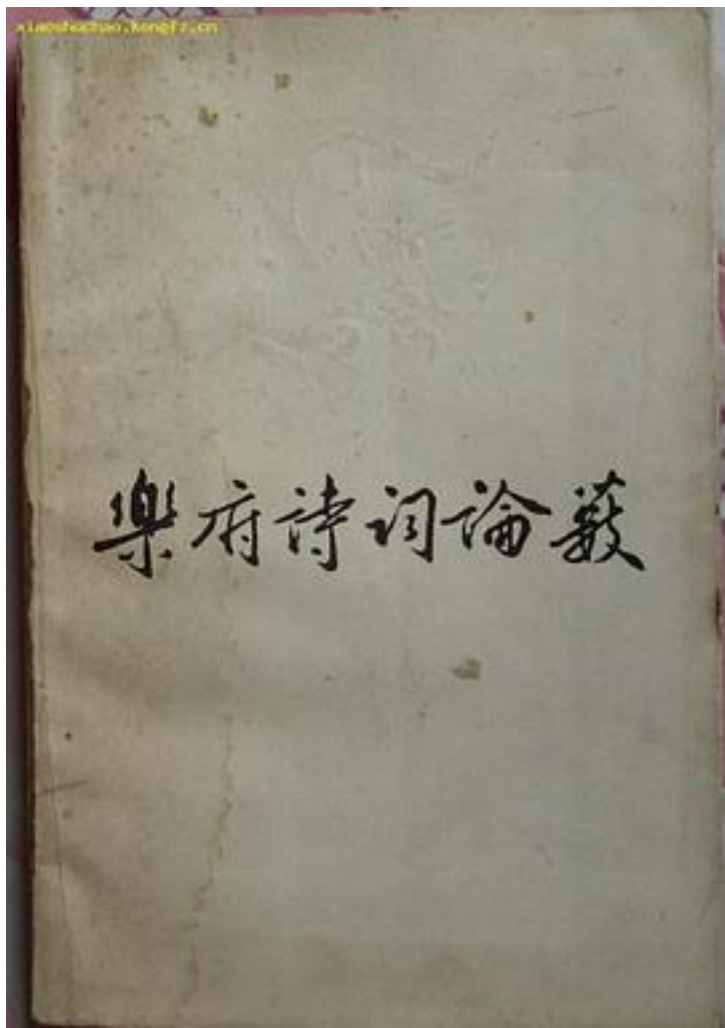 xiaoshuchao.kongfz.cn
樂府詩詞論藪